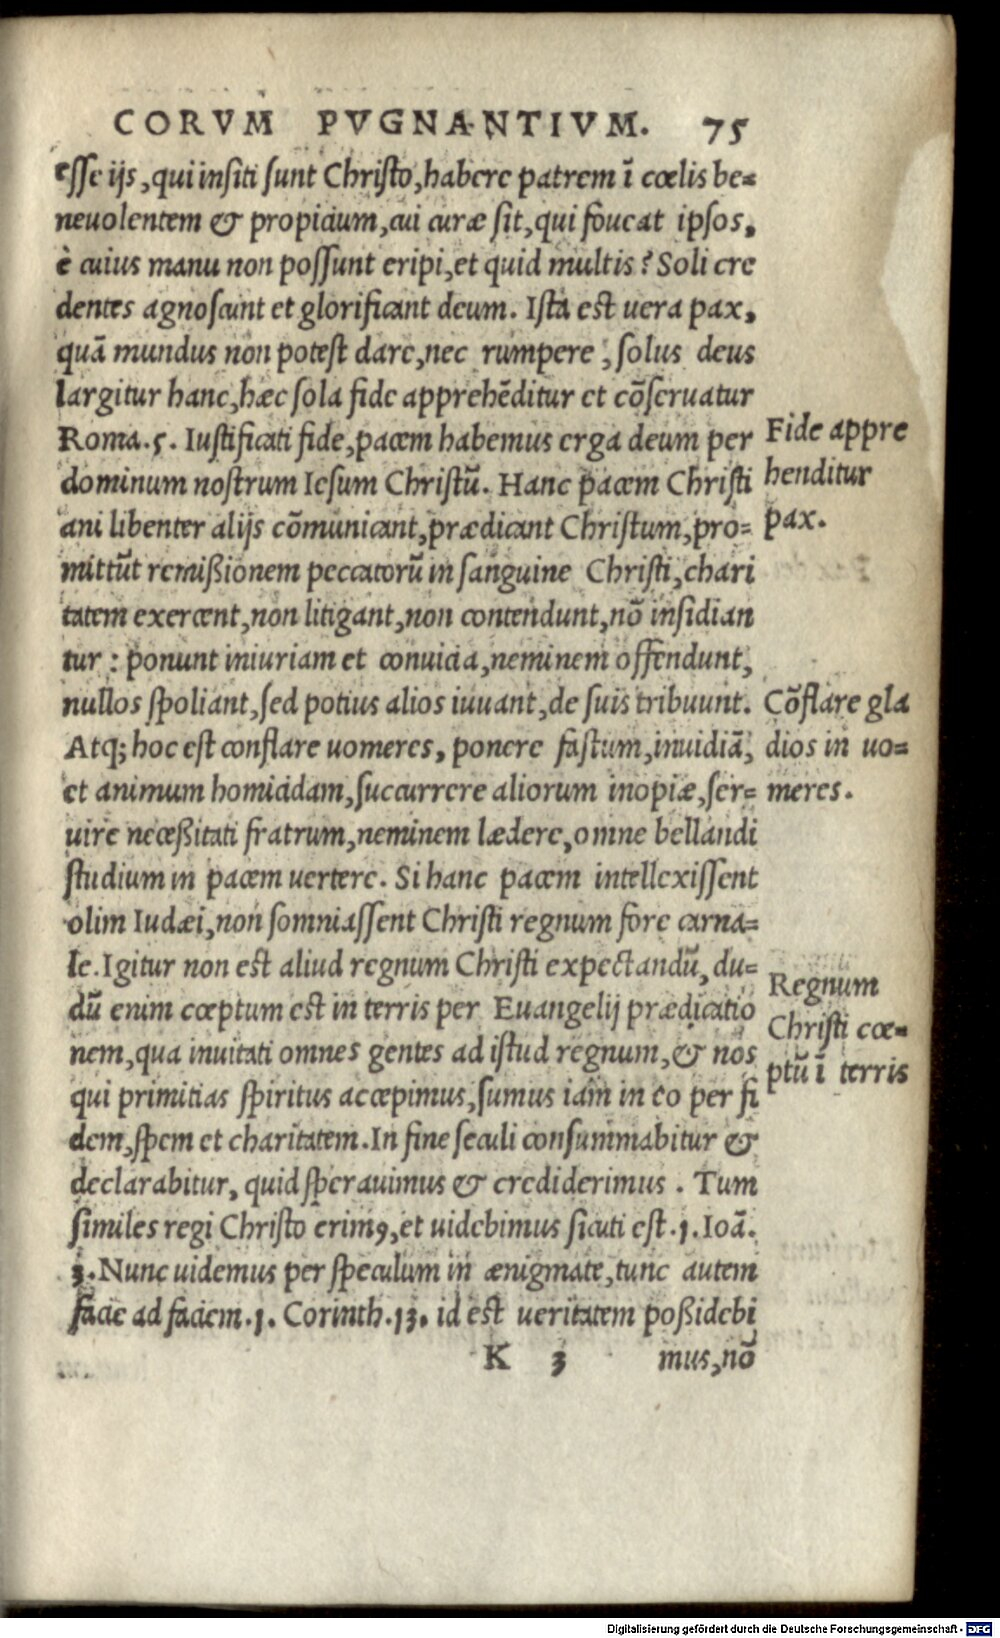 CORVM PVGNANTIVM. 75
esse ijs, qui insiti sunt Christo, habere patrem ĩ cœlis be=
neuolentem & propicium, cui curæ sit, qui foueat ipsos,
è cuius manu non possunt eripi, et quid multis? Soli cre
dentes agnoscunt et glorificant deum. Ista est uera pax,
quã mundus non potest dare, nec rumpere, solus deus
largitur hanc, hæc sola fide apprehẽditur et cõseruatur
Roma. 5. Iustificati fide, pacem habemus erga deum per
dominum nostrum Iesum Christũ. Hanc pacem Christi
ani libenter alijs cõmunicant, prædicant Christum, pro=
mittũt remißionem peccatorũ in sanguine Christi, chari
tatem exercent, non litigant, non contendunt, nõ insidian
tur: ponunt iniuriam et conuicia, neminem offendunt,
nullos spoliant, sed potius alios iuuant, de suis tribuunt.
Atq; hoc est conflare uomeres, ponere fastum, inuidiã,
et animum homicidam, succurrere aliorum inopiæ, ser=
uire neceßitati fratrum, neminem lædere, omne bellandi
studium in pacem uertere. Si hanc pacem intellexissent
olim Iudæi, non somniassent Christi regnum fore carna=
le. Igitur non est aliud regnum Christi expectandũ, du=
dũ enim cœptum est in terris per Euangelij prædicatio
nem, qua inuitati omnes gentes ad istud regnum, & nos
qui primitias spiritus accepimus, sumus iam in eo per fi
dem, spem et charitatem. In fine seculi consummabitur &
declarabitur, quid sperauimus & crediderimus. Tum
similes regi Christo erimꝰ, et uidebimus sicuti est. 1. Ioã.
3. Nunc uidemus per speculum in ænigmate, tunc autem
facie ad faciem. 1. Corinth. 13. id est ueritatem poßidebi
K 3 mus, nõ
Fide appre
henditur
pax.
Cõflare gla
dios in uo=
meres.
Regnum
Christi cœ=
ptũ ĩ terris
Digitalisierung gefördert durch die Deutsche Forschungsgemeinschaft - DFG